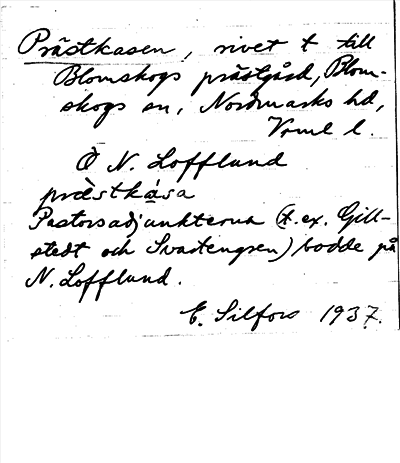 Prästkasen, rivet t till
Blomskogs prästgård, Blom-
skogs sn, Nordmarks hd,
Vrml l.
Ö N. Lofflund
præ̀stkása
Pastorsadjunkterna (t.ex. Gill-
stedt och Svartengren) bodde på
N. Lofflund.
E. Silfors 1937.